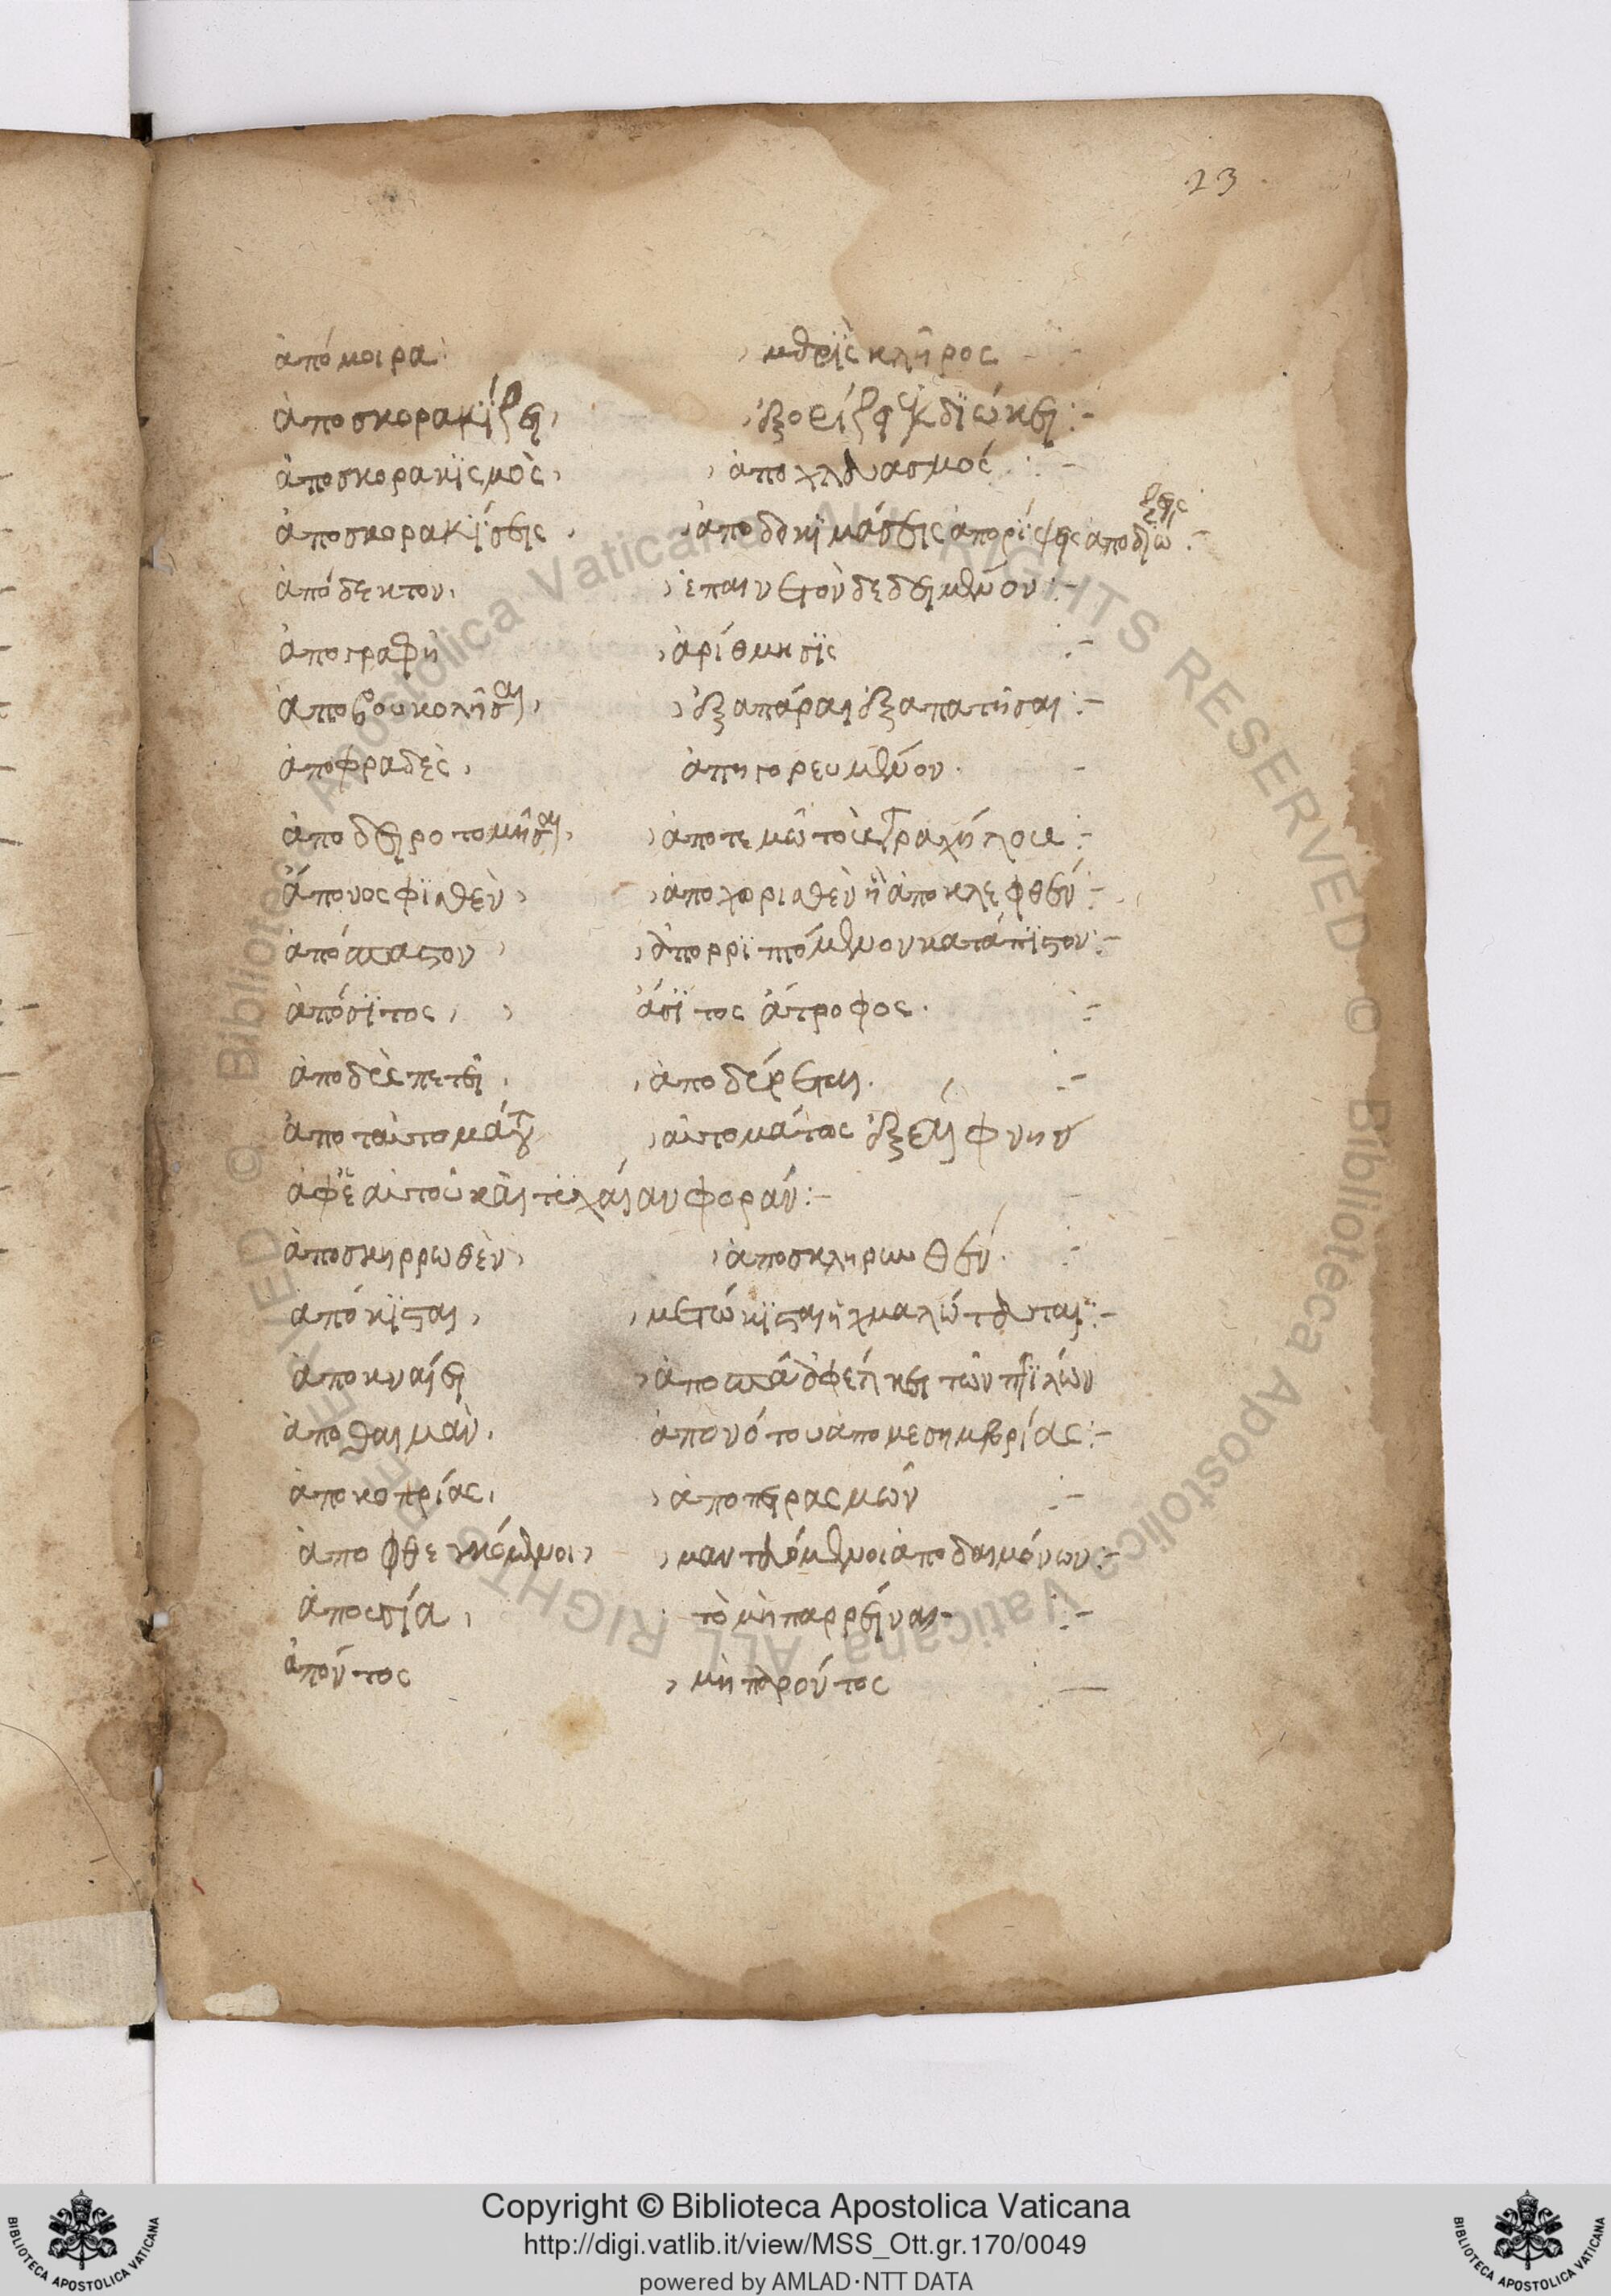 23
ἀπόμοιρα μερὶς κλῆρος
ἀποσκορακίζει, ἐξορίζει ἐκδιώκει:-
ἀποσκορακισμὸς, ἀποχλευασμός :-
ἀποσκορακίσεις, ἀποδοκιμάσεις ἀπορίψεις ἀποδιώξεις :-
ἀπόδεκτον, ἐπαινετὸν δεδειμένον:-
ἀπογραφὴ ἀρίθμησις :-
ἀποβουκολῆσαι, ἐξαπάραι ἐξαπατῆσαι:-
ἀποφραδὲς, ἀπηγορευμένον. -
ἀποδειροτομῆσαι, ἀποτεμῶ τοὺς τραχήλους:-
ἀπονοσφισθὲν, ἀποχωρισθὲν ἢ ἀποκλεφθέν:-
ἀπόπαστον, ἀπορριπτόμενον κατάπιστον:-
ἀπόσιτος, ἄσιτος ἄτροφος. :-
ἀποδὲς πετεῖ, ἀποδέρεται. :-
ἀποταὐτομάτου αὐτομάτως ἐξέφνης
ἀφ' ἑαυτοῦ καὶ τυχαίαν φοράν:-
ἀποσκηρρωθὲν, ἀποσκληρωθέν. :-
ἀπόκισται, μετώκισται ἠχμαλώτευται:-
ἀποκναίει ἀποσπᾶ ἀφέλκει τῶν πτίλων
ἀποθαιμὰν, ἀπονότου ἀπομεσημβρίας:-
ἀποκοπρίας, ἀποπερασμῶν :-
ἀποφθεγγόμενοι, μαντευόμενοι ἀποδαιμόνων:-
ἀπουσία, τὸ μὴ παρρεῖναι- :-
ἀπόντος μὴ παρόντος -
Copyright © Biblioteca Apostolica Vaticana
http://digi.vatlib.it/view/MSS_Ott.gr.170/0049
powered by AMLAD·NTT DATA
BIBLIOTECA APOSTOLICA VATICANA
BIBLIOTECA APOSTOLICA VATICANA
© Biblioteca Apostolica Vaticana ALL RIGHTS RESERVED © Biblioteca Apostolica Vaticana ALL RIGHTS RESERVED